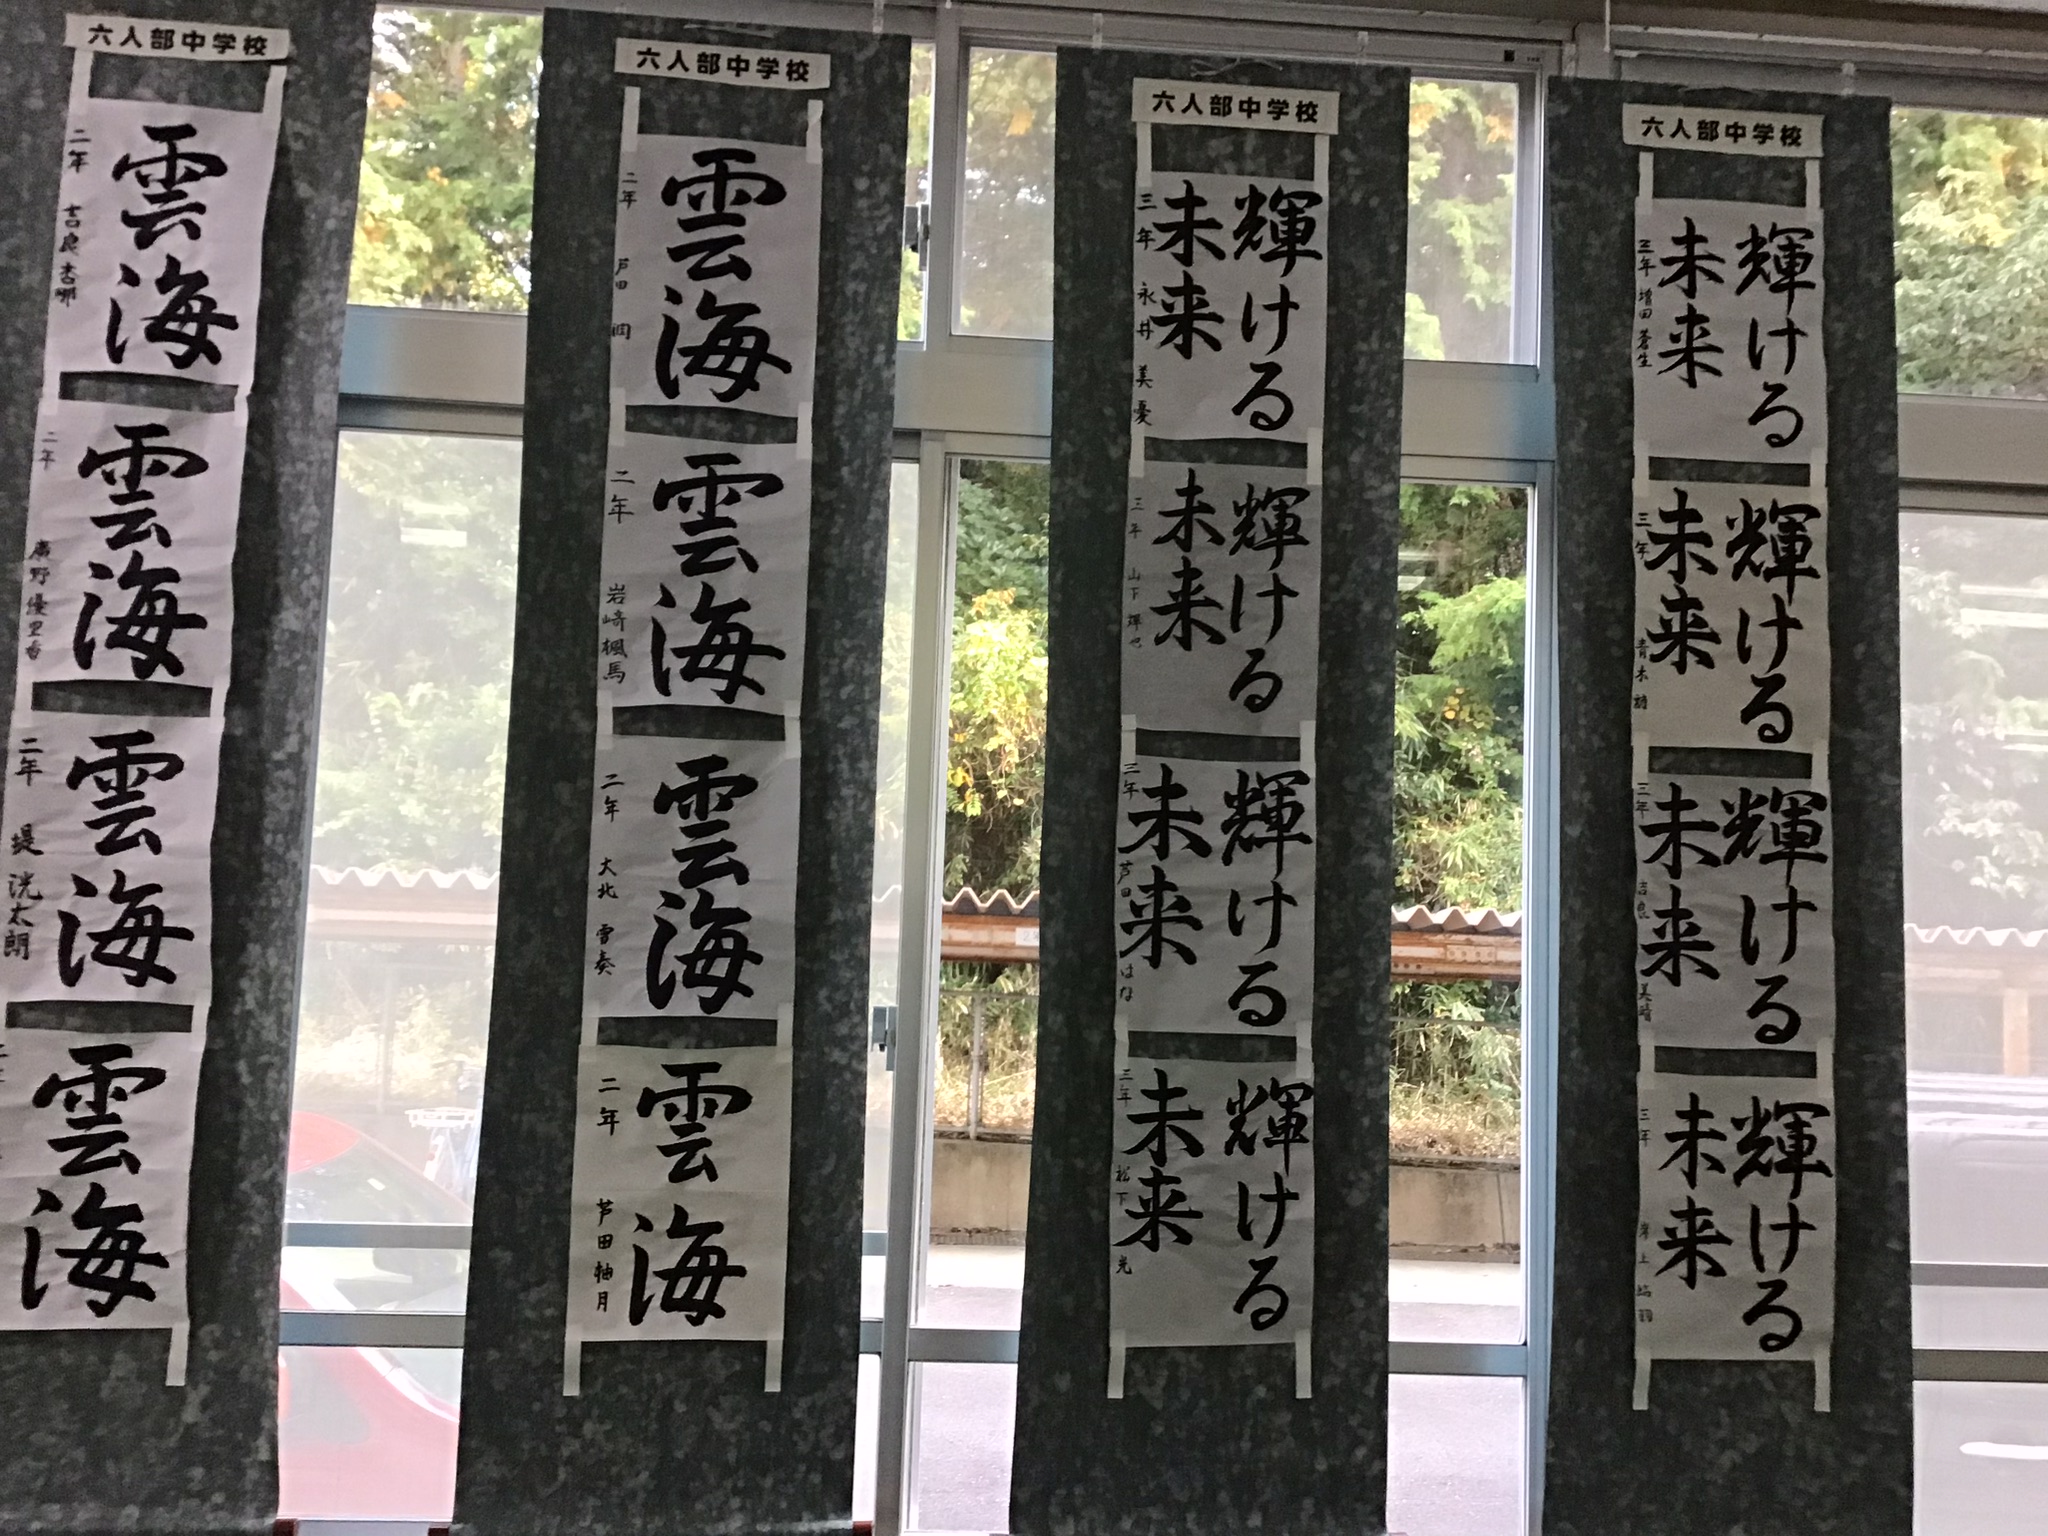 六人部中学校
雲海
二年 吉良杏那
雲海
二年 廣野優里香
雲海
二年 堤 洸太朗
雲海
六人部中学校
雲海
二年 芦田
雲海
二年 岩崎楓馬
雲海
二年 大北 雪奏
雲海
二年 芦田柚月
六人部中学校
輝ける
未来
三年 永井美憂
輝ける
未来
三年 山下輝也
輝ける
未来
三年 芦田 はな
輝ける
未来
三年 松下 光
六人部中学校
輝ける
未来
三年 増田蒼生
輝ける
未来
三年 青木
輝ける
未来
三年 吉良 美晴
輝ける
未来
三年 岸上